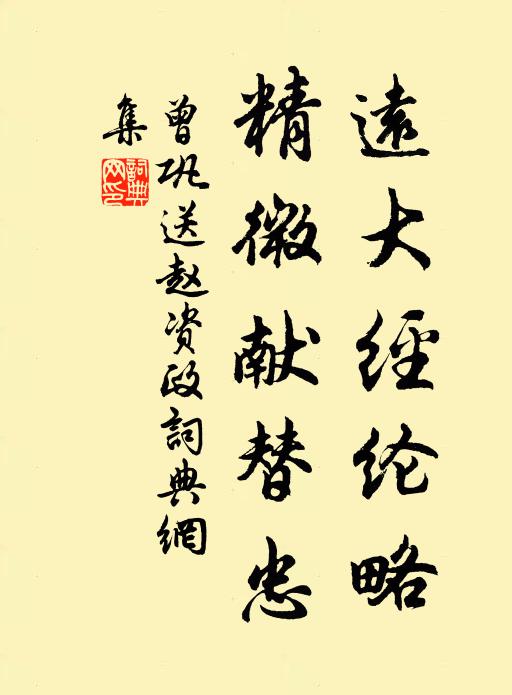 遠大經纶略
精微献替忠
曾巩送赵资政詞典網
集
詞典
网印